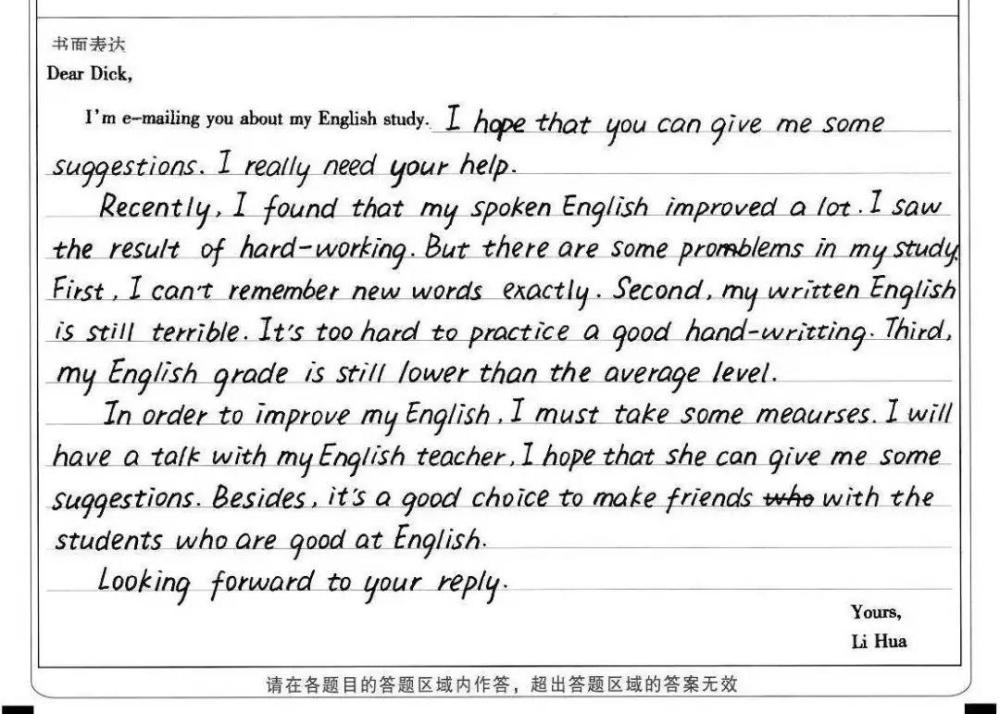 书面表达
Dear Dick,
I'm e-mailing you about my English study. I hope that you can give me some
suggestions. I really need your help.
Recently, I found that my spoken English improved a lot. I saw
the result of hard-working. But there are some promblems in my study.
First, I can't remember new words exactly. Second, my written English
is still terrible. It's too hard to practice a good hand-writting. Third,
my English grade is still lower than the average level.
In order to improve my English, I must take some meaurses. I will
have a talk with my English teacher, I hope that she can give me some
suggestions. Besides, it's a good choice to make friends who with the
students who are good at English.
Looking forward to your reply.
Yours,
Li Hua
请在各题目的答题区域内作答，超出答题区域的答案无效